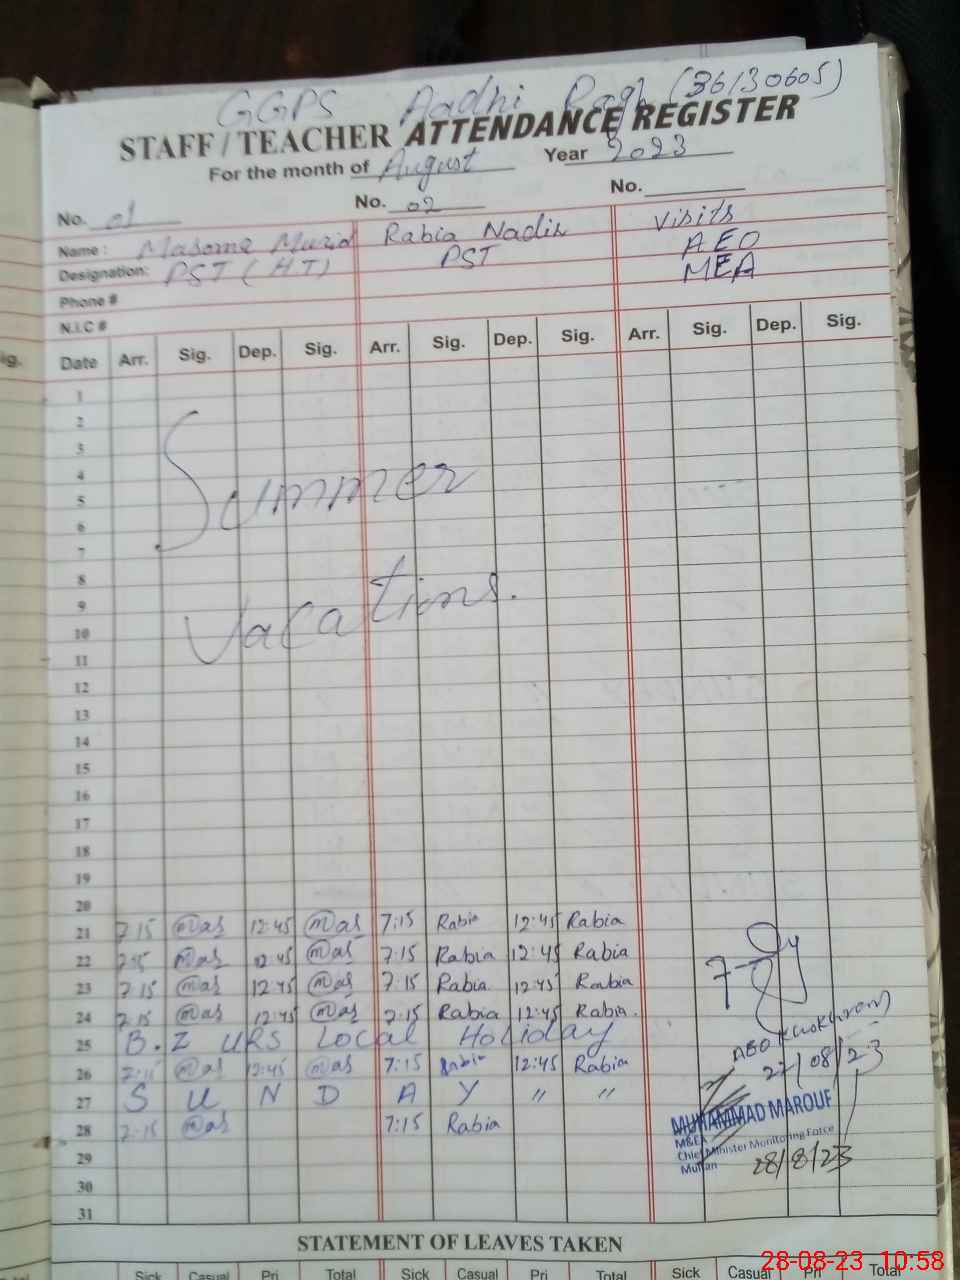 GGPS Aadhi Bagh (36130605)
STAFF / TEACHER ATTENDANCE REGISTER
For the month of August Year 2023
No. 01 No. 02 No.
Name : Masoma Murid Rabia Nadir Visits
Designation: PST (H.T) PST AEO
MEA
Phone #
N.I.C #
Date Arr. Sig. Dep. Sig. Arr. Sig. Dep. Sig. Arr. Sig. Dep. Sig.
1
2
3
4
Summer
5
6
7
8
9
Vacations.
10
11
12
13
14
15
16
17
18
19
20
21 7:15 mas 12:45 mas 7:15 Rabia 12:45 Rabia
22 7:15 mas 12:45 mas 7:15 Rabia 12:45 Rabia
23 7:15 mas 12:45 mas 7:15 Rabia 12:45 Rabia
24 7:15 mas 12:45 mas 7:15 Rabia 12:45 Rabia.
25 B.Z URS Local Holiday
26 7:15 mas 12:45 mas 7:15 Rabia 12:45 Rabia
AEO
27/08/23
27 S U N D A Y " "
28 7:15 mas 7:15 Rabia
MUHAMMAD MAROUF
M&EA
Chief Minister Monitoring Force
Multan
28/8/23
29
30
31
STATEMENT OF LEAVES TAKEN
Sick Casual Pri Total Sick Casual Pri Total Sick Casual Pri Total
28-08-23 10:58